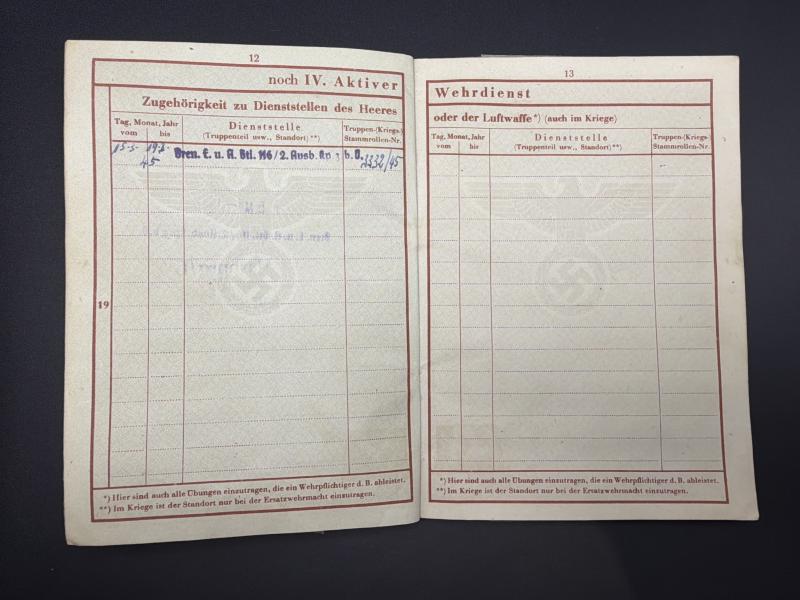 12
noch IV. Aktiver
Zugehörigkeit zu Dienststellen des Heeres
Tag, Monat, Jahr
vom bis
Dienststelle
(Truppenteil usw., Standort)**)
Truppen-(Kriegs-)
Stammrollen-Nr.
45
Gren. E. u. A. Btl. 116/2. Ausb. Kp.
3332/45
19
*) Hier sind auch alle Übungen einzutragen, die ein Wehrpflichtiger d. B. ableistet.
**) Im Kriege ist der Standort nur bei der Ersatzwehrmacht einzutragen.
13
Wehrdienst
oder der Luftwaffe*) (auch im Kriege)
Tag, Monat, Jahr
vom bis
Dienststelle
(Truppenteil usw., Standort)**)
Truppen-(Kriegs-)
Stammrollen-Nr.
*) Hier sind auch alle Übungen einzutragen, die ein Wehrpflichtiger d. B. ableistet.
**) Im Kriege ist der Standort nur bei der Ersatzwehrmacht einzutragen.